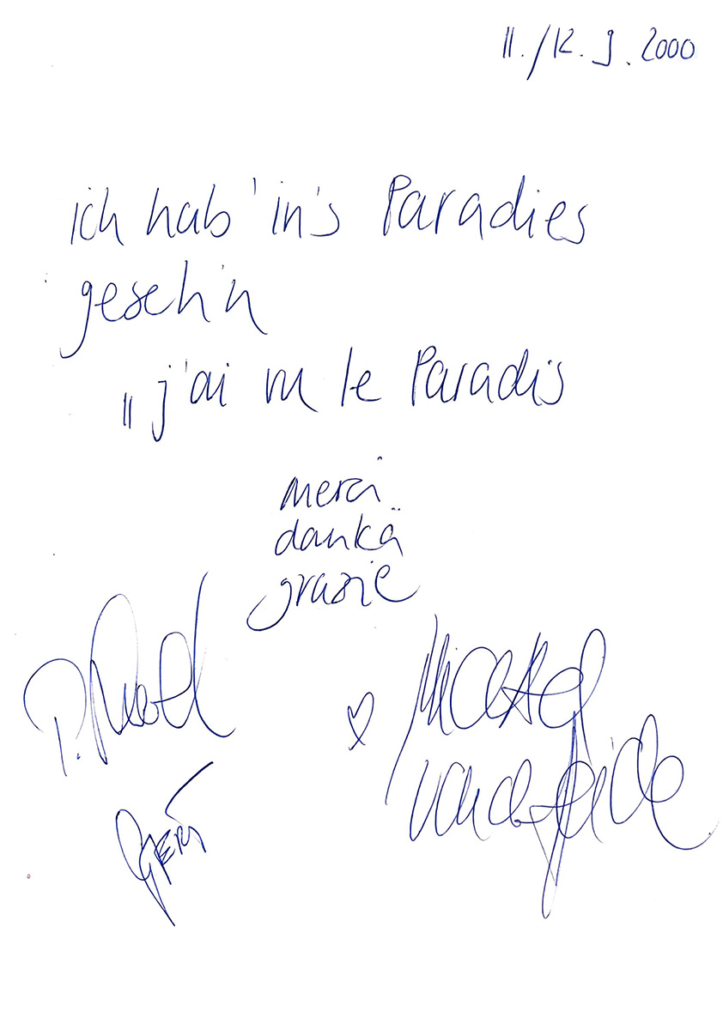 11./12. 9. 2000
ich hab' in's Paradies
geseh'n
„j'ai vu le Paradis
merci
dankä
grazie
Michael
von der Heide
Gert